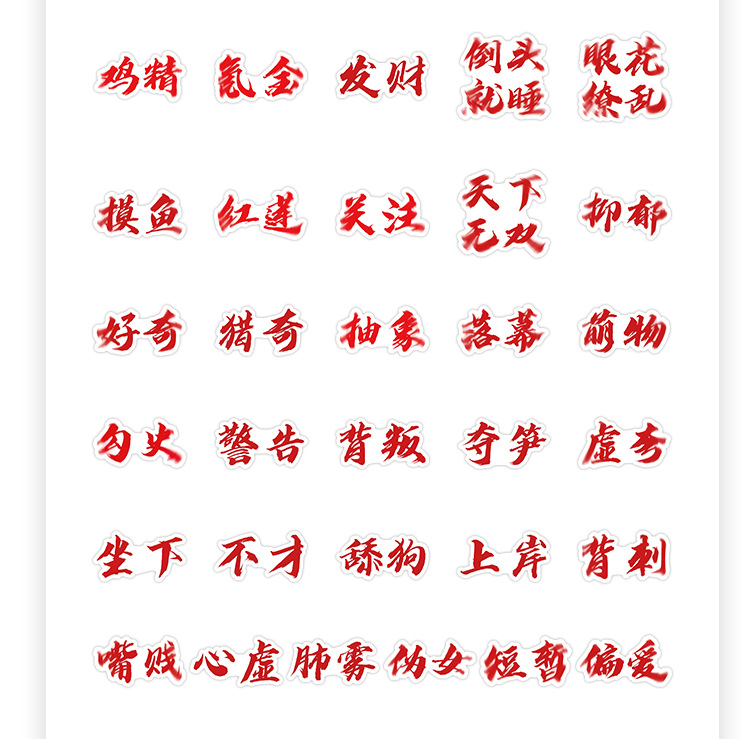 鸡精
氪金
发财
倒头
就睡
眼花
缭乱
摸鱼
红莲
关注
天下
无双
抑郁
好奇
猎奇
抽象
落幕
萌物
勾史
警告
背叛
夺笋
虚夸
坐下
不才
舔狗
上岸
背刺
嘴贱
心虚
肺雾
伪女
短暂
偏爱